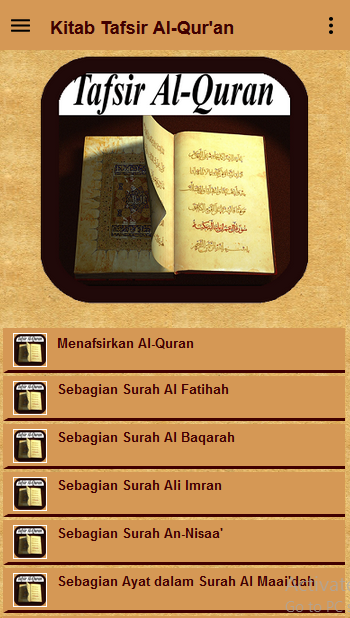 Kitab Tafsir Al-Qur'an
Tafsir Al-Quran
Menafsirkan Al-Quran
Sebagian Surah Al Fatihah
Sebagian Surah Al Baqarah
Sebagian Surah Ali Imran
Sebagian Surah An-Nisaa'
Sebagian Ayat dalam Surah Al Maai'dah